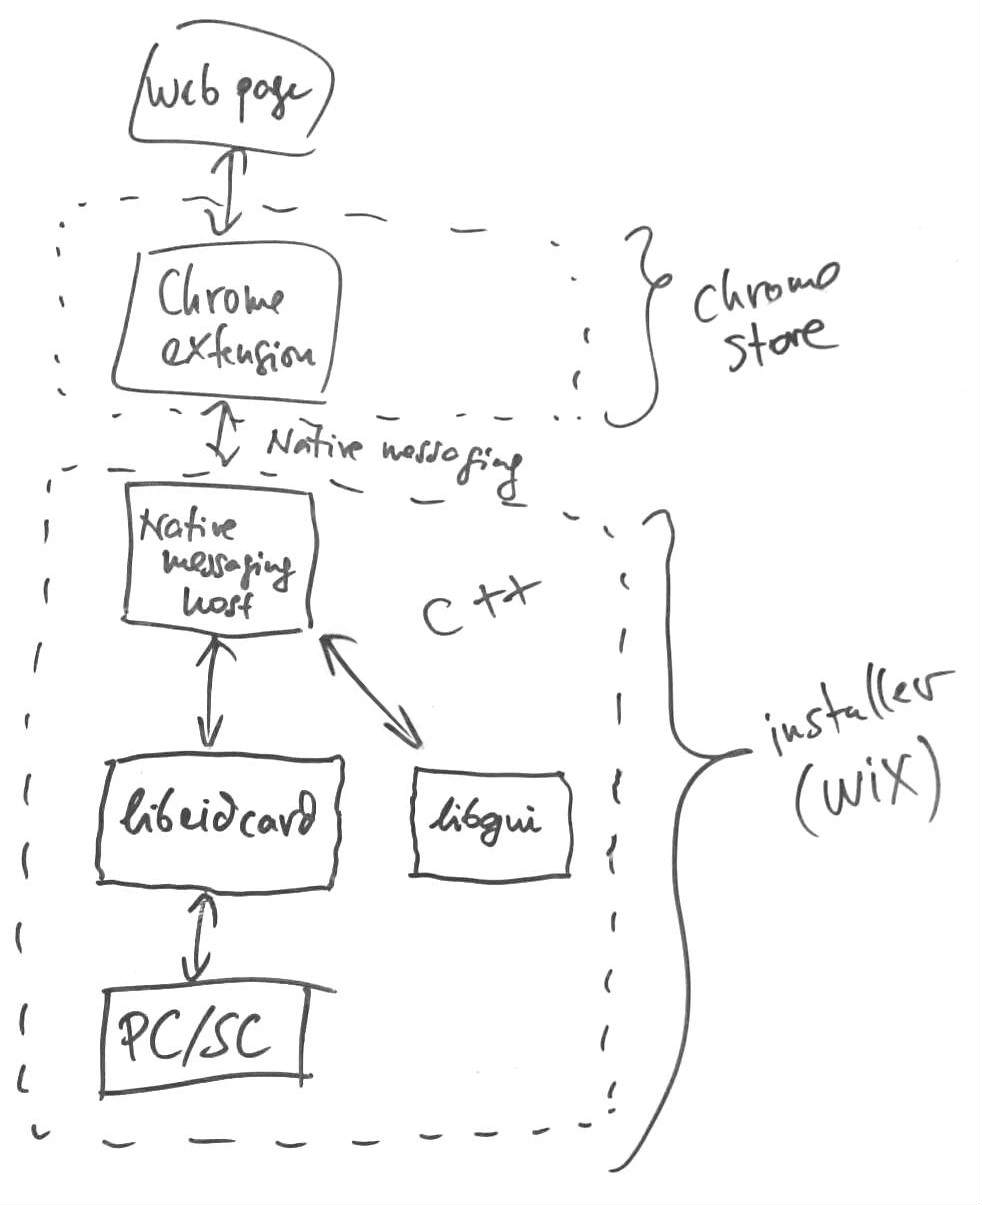 Web page
Chrome
extension
Chrome
store
Native messaging
Native
messaging
host
C++
installer
(WiX)
libeidcard
libgui
PC/SC